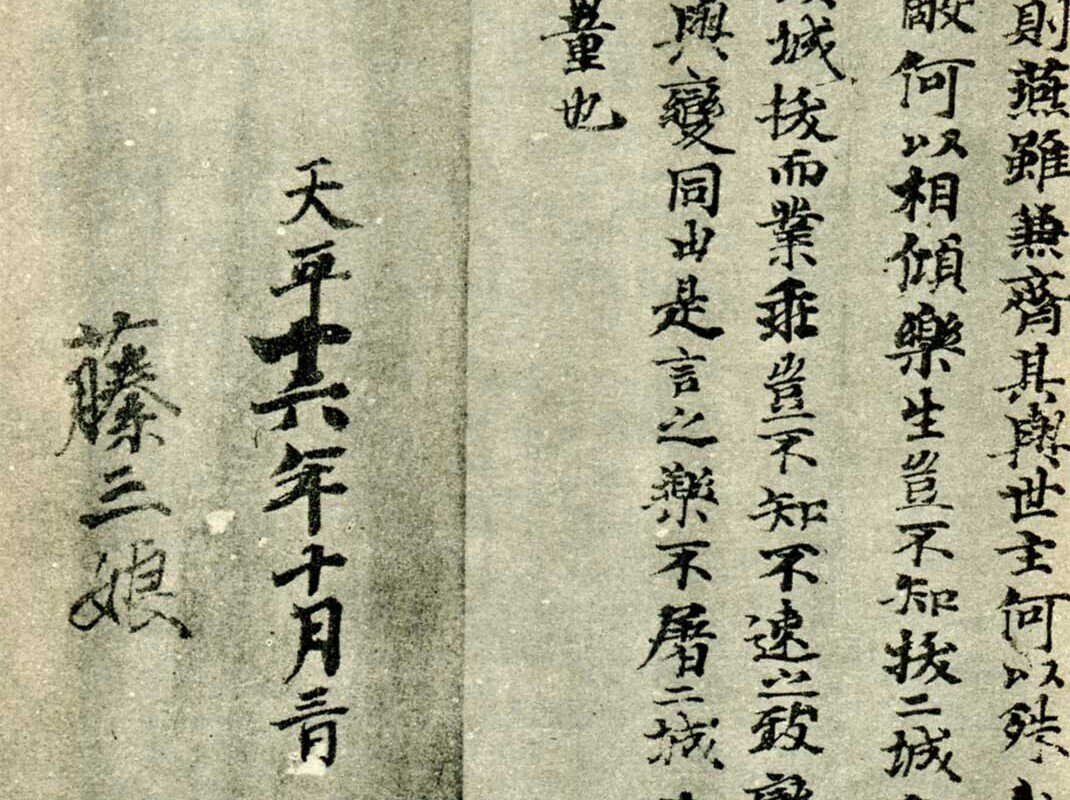 則燕雖兼齊其與世主何以殊
敵何以相傾樂生豈不知拔二城
城拔而業乖豈不知不速之致變
與變同由是言之樂不屠二城
量也
天平十六年十月三日
藤三娘